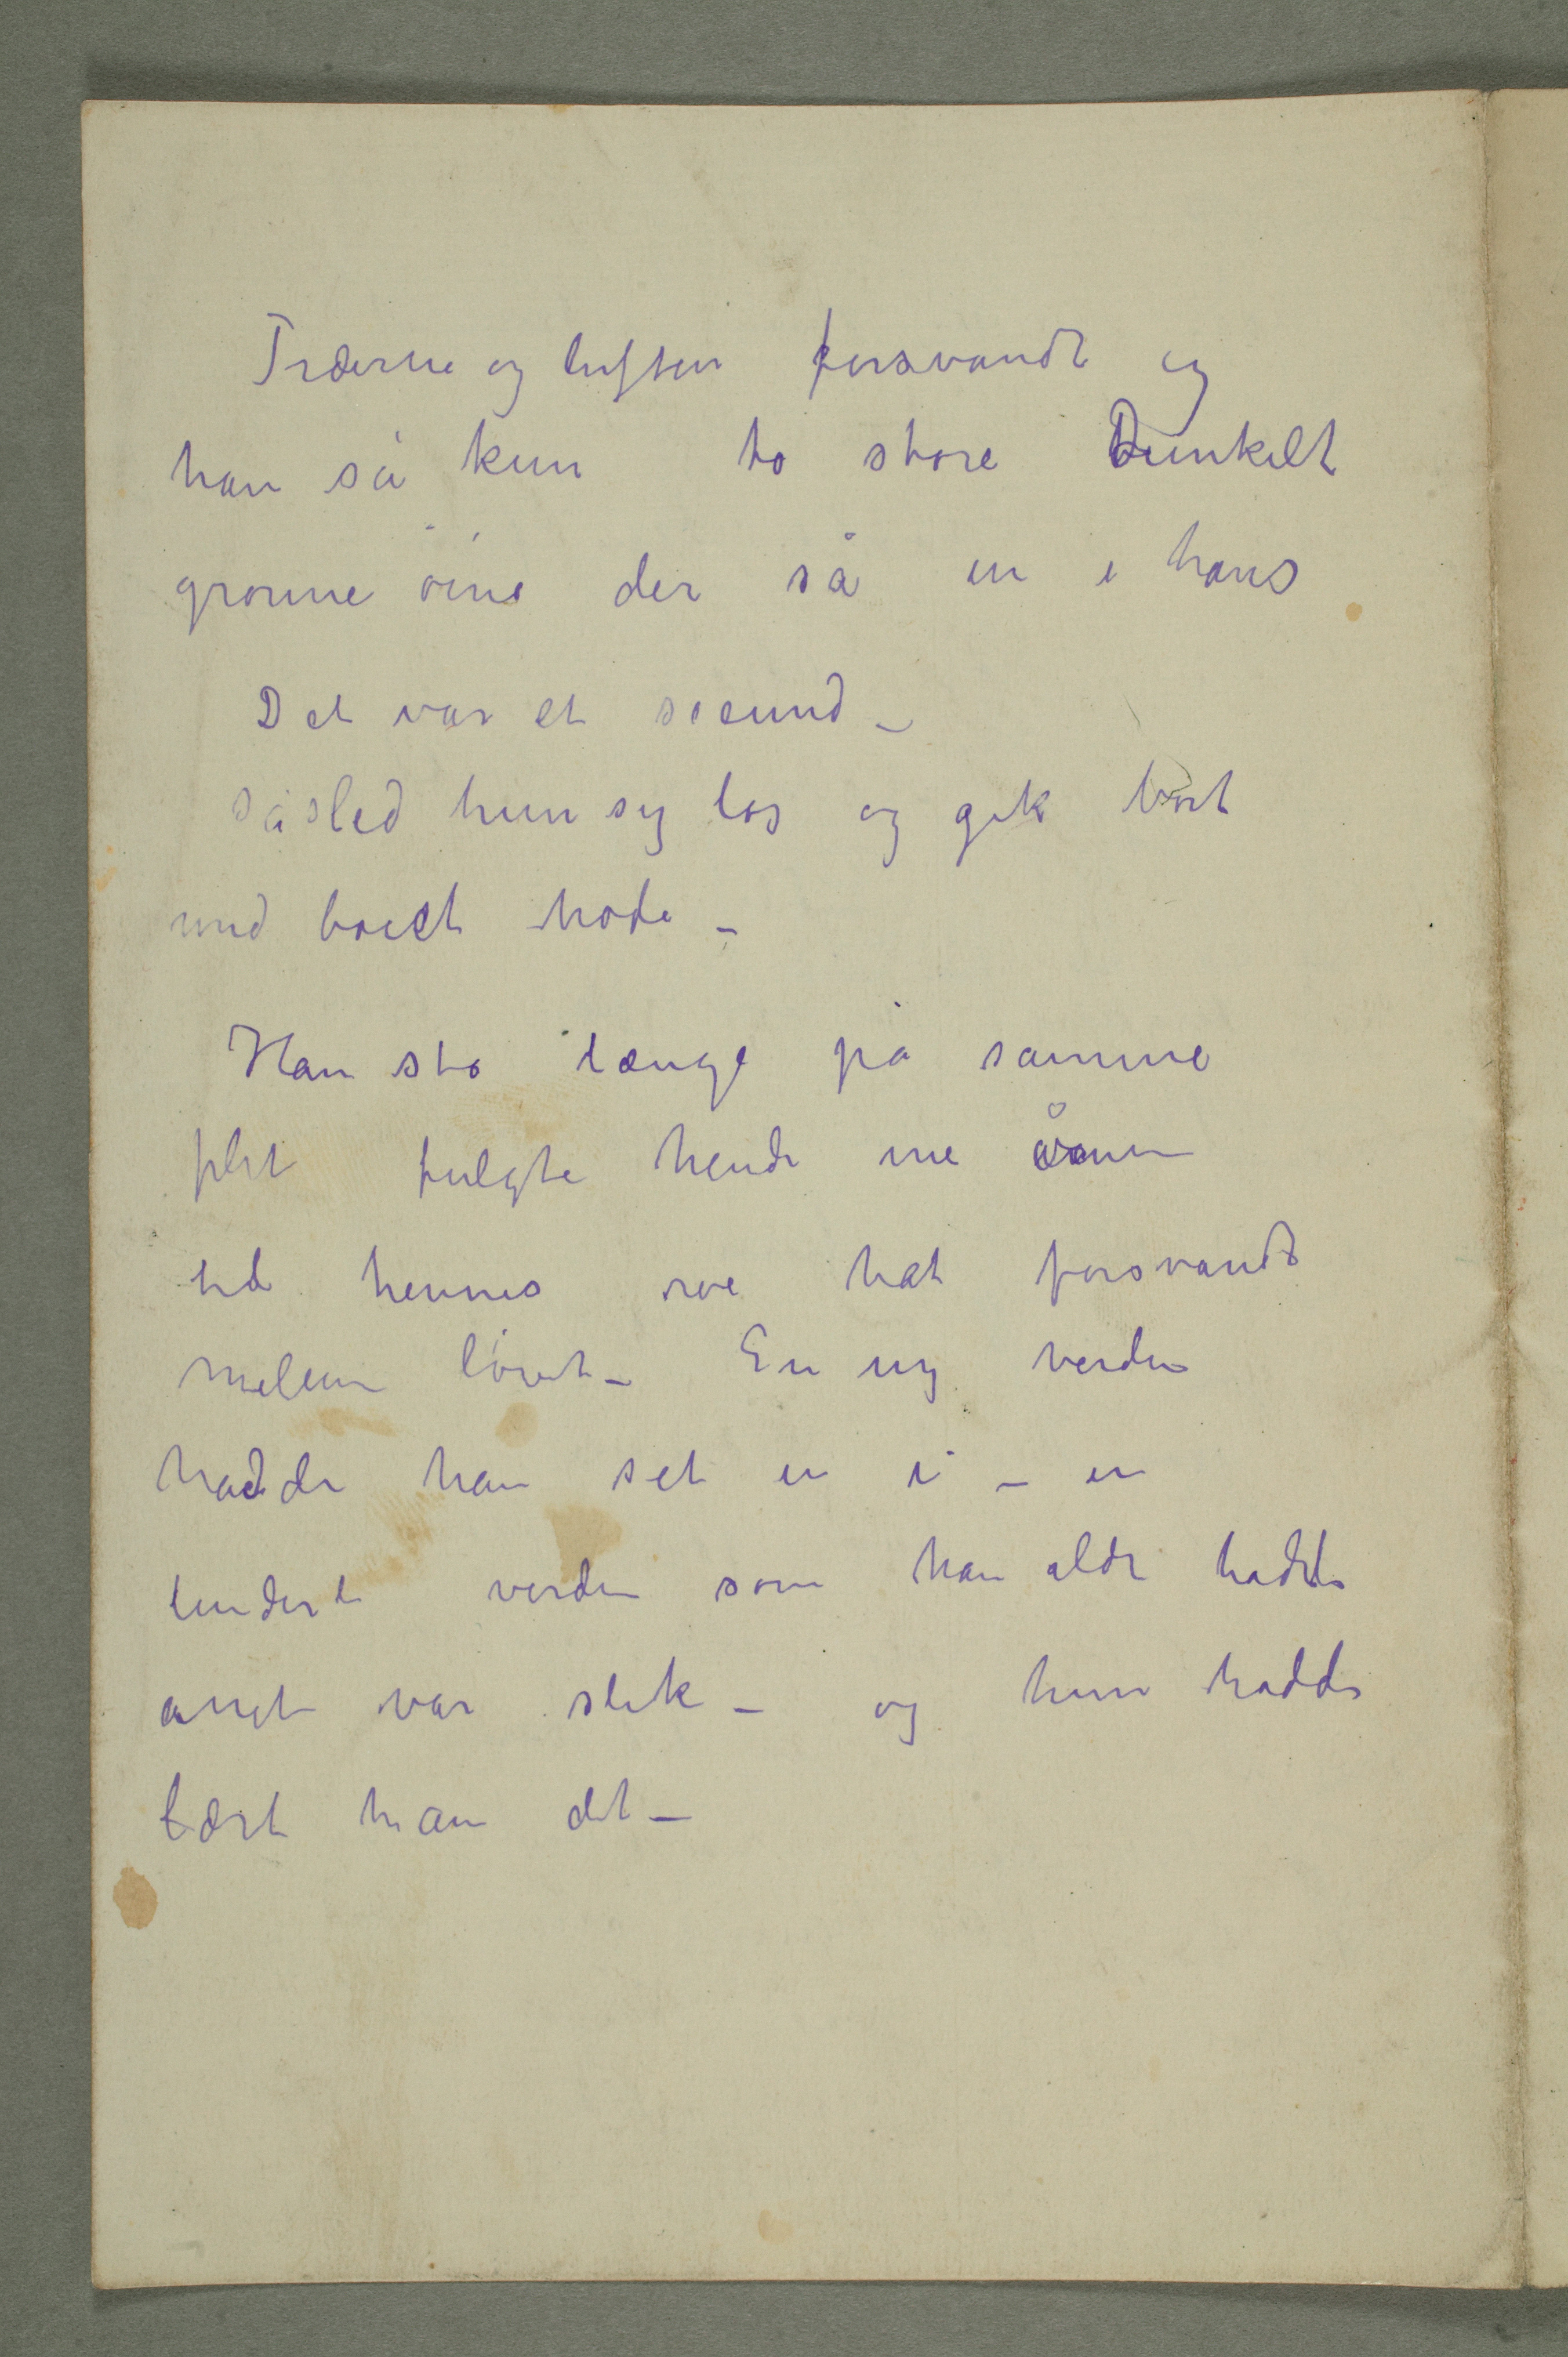 Trærne og luften forsvandt og
han så kun to store Dunkelt
grønne öine der så in i hans
Det var et secund –
så sled hun sig løs og gik bort
med boiet hode –
Han sto længe på samme
plet fulgte hende me
til hennes røe hat forsvandt
mellem løvet – En ny verden
hadde han set in i – en
underl verden som han aldr hadde
anet var slik – og hun hadde
lært ham det –